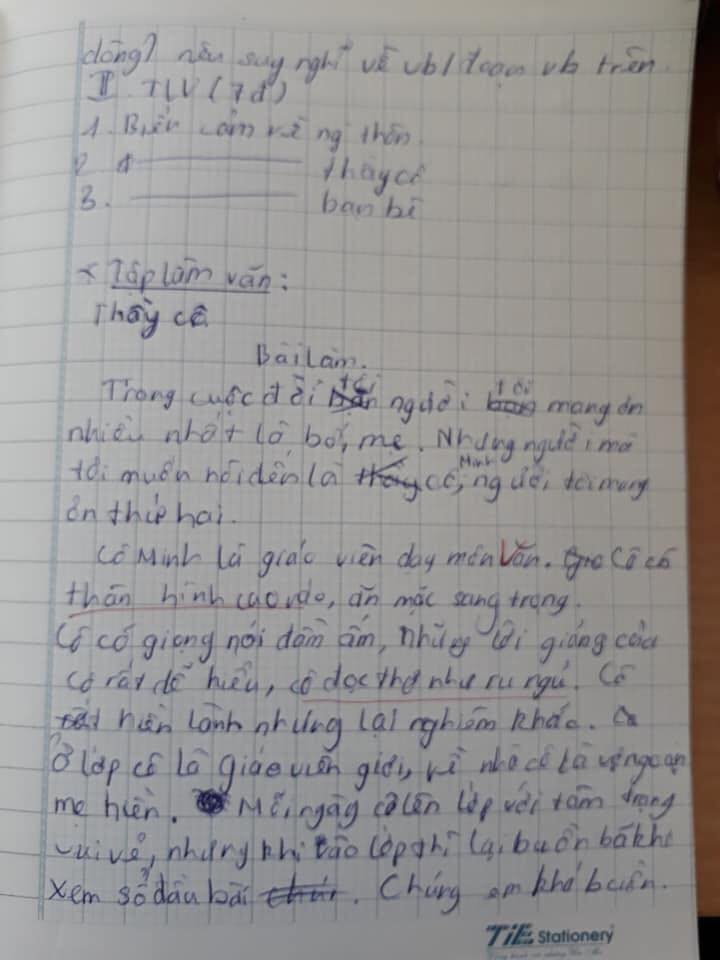 dòng) nêu suy nghĩ về vb/đoạn vb trên.
II. TLV (7đ)
1. Biểu cảm về ng thân.
2 ——— thầy cô
3. ——— bạn bè
* Tập làm văn:
Thầy cô
Bài làm.
Trong cuộc đời tôi người tôi mang ơn
nhiều nhất là bố, mẹ. Nhưng người mà
tôi muốn nói đến là cô Minh, người tôi mang
ơn thứ hai.
Cô Minh là giáo viên dạy môn Văn. Cô có
thân hình cao ráo, ăn mặc sang trọng.
Cô có giọng nói đầm ấm, những lời giảng của
cô rất dễ hiểu, cô đọc thơ như ru ngủ. Cô
rất hiền lành nhưng lại nghiêm khắc.
Ở lớp cô là giáo viên giỏi, về nhà cô là vợ ngoan
mẹ hiền. Mỗi ngày cô lên lớp với tâm trạng
vui vẻ, nhưng khi vào lớp thì lại buồn bã khi
xem sổ đầu bài. Chúng em khá buồn.
TiE Stationery